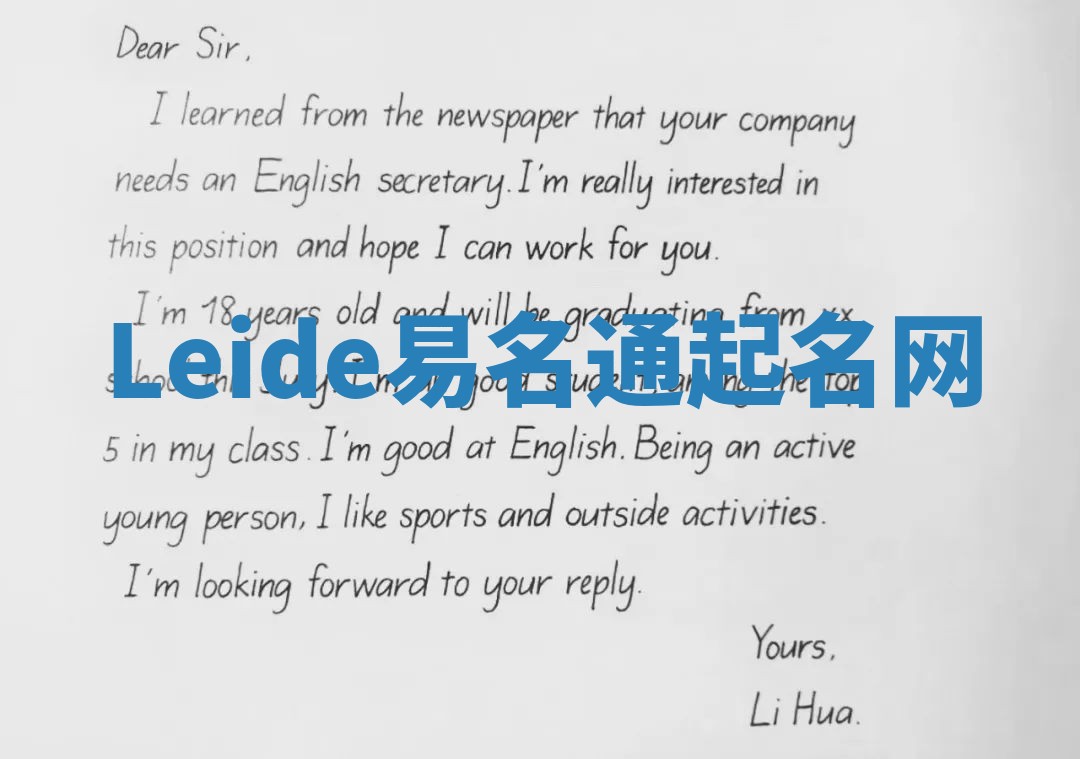 Dear Sir,
I learned from the newspaper that your company
needs an English secretary. I'm really interested in
this position and hope I can work for you.
I'm 18 years old and will be graduating from xx
Leide易名通起名网
5 in my class. I'm good at English. Being an active
young person, I like sports and outside activities.
I'm looking forward to your reply.
Yours,
Li Hua.